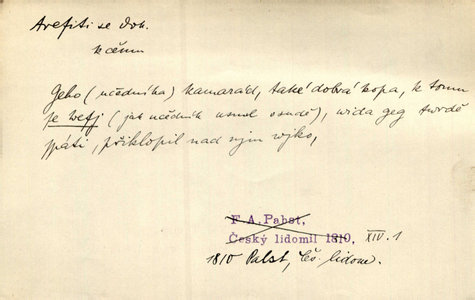 Arefiti se dok.
k čemu
Geho (učedníka) kamarád, také dobrá kopa, k tomu
se trefj (jak učedník usnul v sudě), wida geg twrdě
spáti, přiklopil nad njm wjko,
F. A. Pabst,
Český lidomil 1810, XIV. 1
1810 Pabst, Čes. lidom.